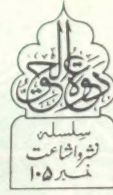 دعوة الحق
سلسلہ
نشر و اشاعت
نمبر ۱۰۵